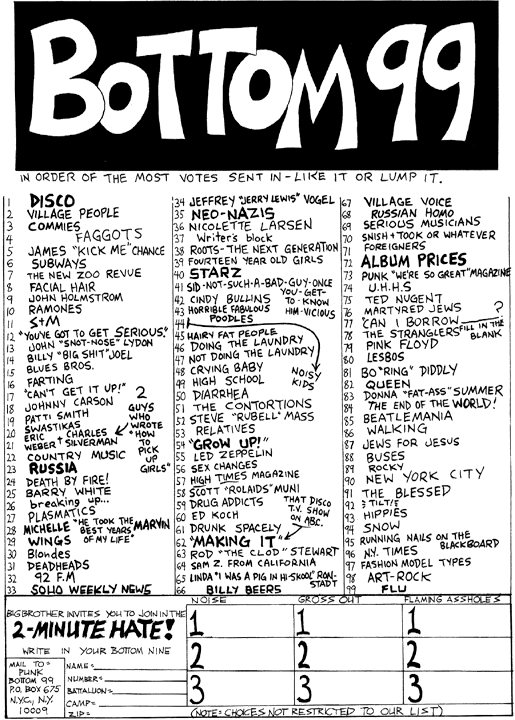 BOTTOM 99
IN ORDER OF THE MOST VOTES SENT IN-LIKE IT OR LUMP IT.
1 DISCO
2 VILLAGE PEOPLE
3 COMMIES
4 FAGGOTS
5 JAMES "KICK ME" CHANCE
6 SUBWAYS
7 THE NEW ZOO REVUE
8 FACIAL HAIR
9 JOHN HOLMSTROM
10 RAMONES
11 S+M
12 "YOU'VE GOT TO GET SERIOUS."
13 JOHN "SNOT-NOSE" LYDON
14 BILLY "BIG SHIT" JOEL
15 BLUES BROS.
16 FARTING
17 "CAN'T GET IT UP!"
18 JOHNNY CARSON
19 PATTI SMITH
20 SWASTIKAS
21 ERIC WEBER + CHARLES SILVERMAN
2 GUYS WHO WROTE "HOW TO PICK UP GIRLS"
22 COUNTRY MUSIC
23 RUSSIA
24 DEATH BY FIRE!
25 BARRY WHITE
26 breaking up...
27 PLASMATICS
28 MICHELLE "HE TOOK THE BEST YEARS OF MY LIFE" MARVIN
29 WINGS
30 Blondes
31 DEADHEADS
32 92 F.M
33 SOHO WEEKLY NEWS
34 JEFFREY "JERRY LEWIS" VOGEL
35 NEO-NAZIS
36 NICOLETTE LARSEN
37 Writer's block
38 ROOTS-THE NEXT GENERATION
39 FOURTEEN YEAR OLD GIRLS
40 STARZ
41 SID-NOT-SUCH-A-BAD-GUY-ONCE YOU-GET-TO-KNOW HIM-VICIOUS
42 CINDY BULLINS
43 HORRIBLE FABULOUS POODLES
44 NOISY KIDS
45 HAIRY FAT PEOPLE
46 DOING THE LAUNDRY
47 NOT DOING THE LAUNDRY
48 CRYING BABY
49 HIGH SCHOOL
50 DIARRHEA
51 THE CONTORTIONS
52 STEVE "RUBELL" MASS
53 RELATIVES
54 "GROW UP!"
55 LED ZEPPELIN
56 SEX CHANGES
57 HIGH TIMES MAGAZINE
58 SCOTT "ROLAIDS" MUNI
59 DRUG ADDICTS
60 ED KOCH
61 DRUNK SPACELY
62 "MAKING IT"
THAT DISCO T.V. SHOW ON ABC.
63 ROD "THE CLOD" STEWART
64 SAM Z. FROM CALIFORNIA
65 LINDA "I WAS A PIG IN HI-SKOOL" RONSTADT
66 BILLY BEERS
67 VILLAGE VOICE
68 RUSSIAN HOMO
69 SERIOUS MUSICIANS
70 SNISH+TOOK OR WHATEVER
71 FOREIGNERS
72 ALBUM PRICES
73 PUNK "WE'RE SO GREAT" MAGAZINE
74 U.H.H.S
75 TED NUGENT
76 MARTYRED JEWS
77 "CAN I BORROW ?
FILL IN THE BLANK
78 THE STRANGLERS
79 PINK FLOYD
80 LESBOS
81 BO "RING" DIDDLY
82 QUEEN
83 DONNA "FAT-ASS" SUMMER
84 THE END OF THE WORLD!
85 BEATLEMANIA
86 WALKING
87 JEWS FOR JESUS
88 BUSES
89 ROCKY
90 NEW YORK CITY
91 THE BLESSED
92 TILT
93 HIPPIES
94 SNOW
95 RUNNING NAILS ON THE BLACKBOARD
96 N.Y. TIMES
97 FASHION MODEL TYPES
98 ART-ROCK
99 FLU
BIG BROTHER INVITES YOU TO JOIN IN THE
2-MINUTE HATE!
WRITE IN YOUR BOTTOM NINE
MAIL TO=
PUNK
BOTTOM 99
P.O. BOX 675
N.Y.C., N.Y.
10009
NAME=
NUMBER=
BATTALLION=
CAMP=
ZIP=
NOISE GROSS OUT FLAMING ASSHOLES
1 1 1
2 2 2
3 3 3
(NOTE: CHOICES NOT RESTRICTED TO OUR LIST)